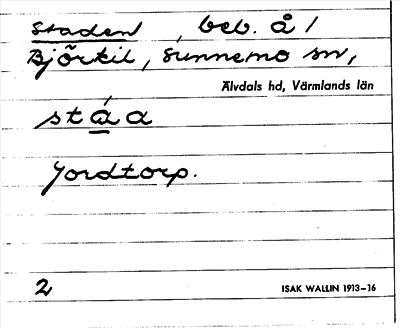 Staden, beb. å /
Björkil, Sunnemo sn,
Älvdals hd, Värmlands län
stá̱a
Jordtorp.
2 ISAK WALLIN 1913–16